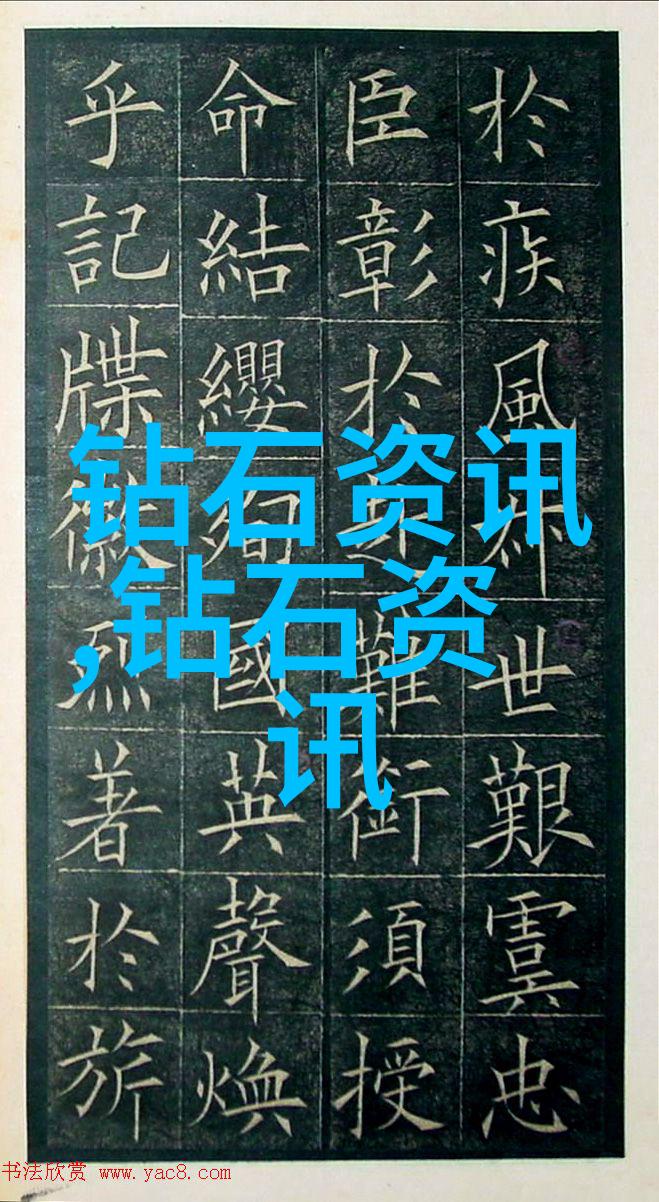 於疾風世艱虞忠
臣彰於難銜須授
命結纓殉國英聲煥
乎記牒徽烈著於旂
钻石资讯
,钻石资
讯
书法欣赏 www.yac8.com